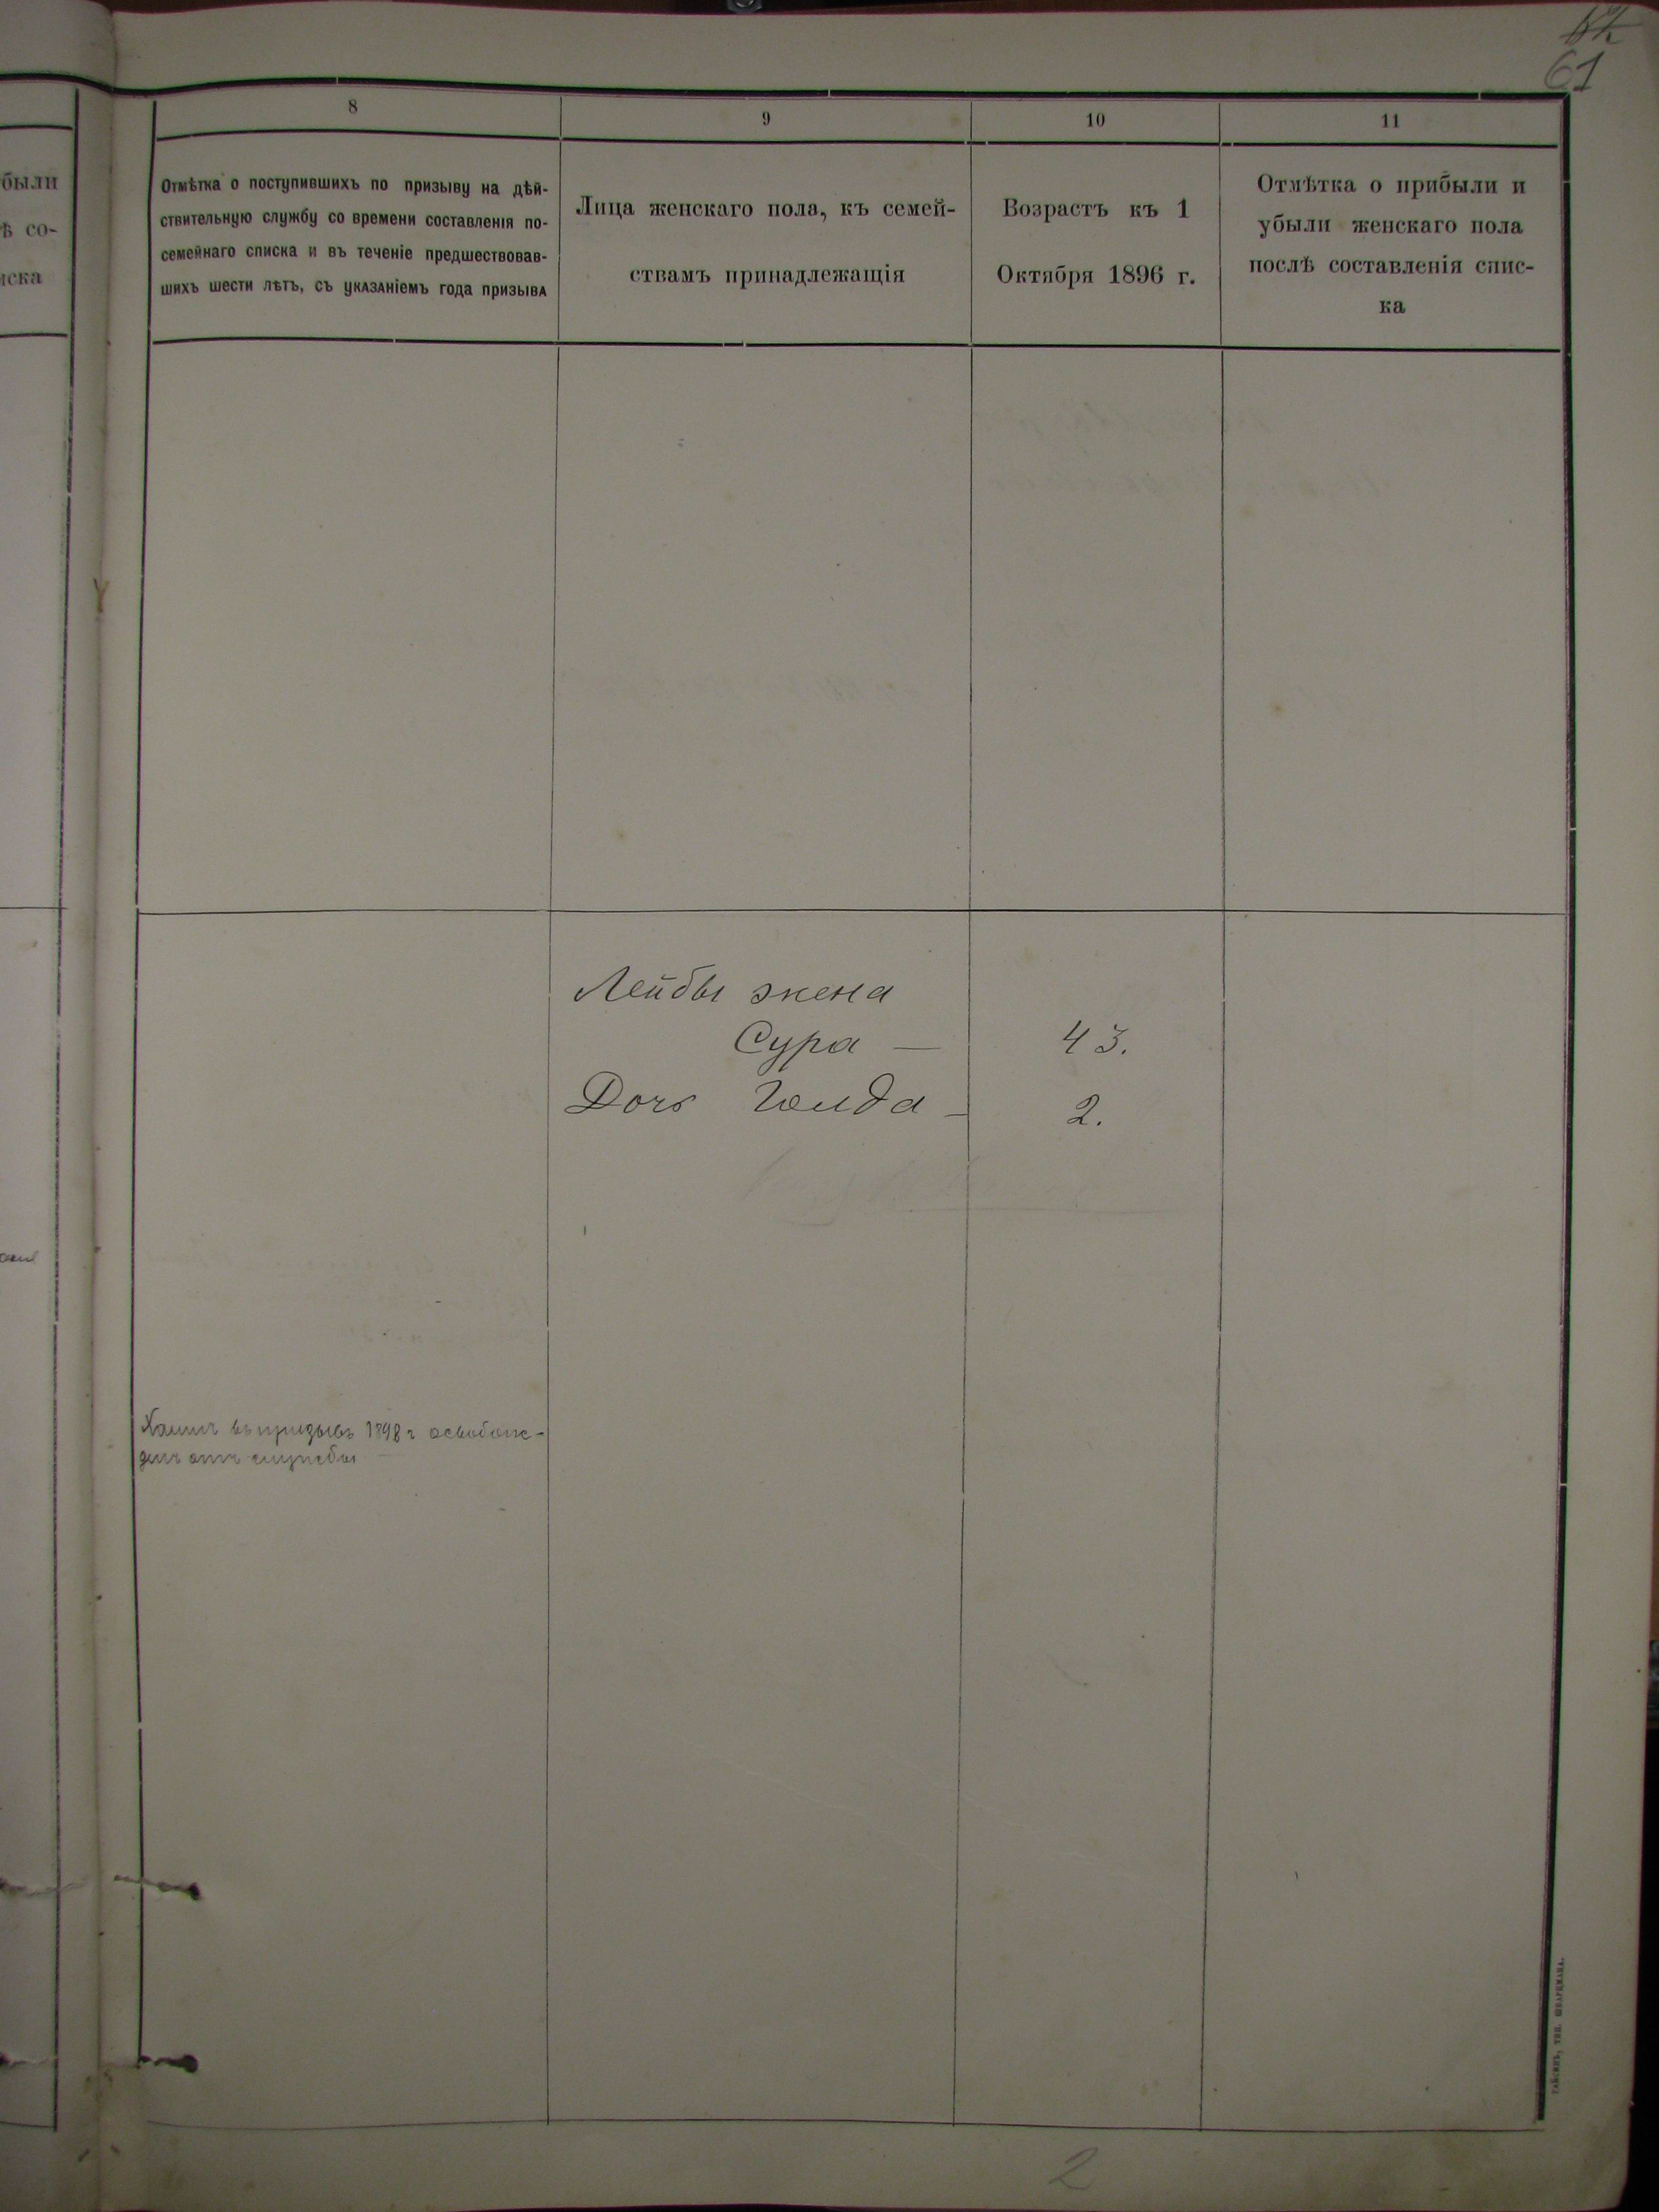 61
8
9
10
11
были
ѣ со-
иска
Отмѣтка о поступившихъ по призыву на дѣй-
ствительную службу со времени составленія по-
семейнаго списка и въ теченіе предшествовав-
шихъ шести лѣтъ, съ указаніемъ года призыва
Лица женскаго пола, къ семей-
ствамъ принадлежащія
Возрастъ къ 1
Октября 1896 г.
Отмѣтка о прибыли и
убыли женскаго пола
послѣ составленія спис-
ка
Лейбы жена
Сура — 43.
Дочь Голда - 2.
Хаимъ въ призывъ 1898 г освобож-
денъ отъ службы
2
ГАЙСИНЪ, ТИП. ШВАРЦМАНА.